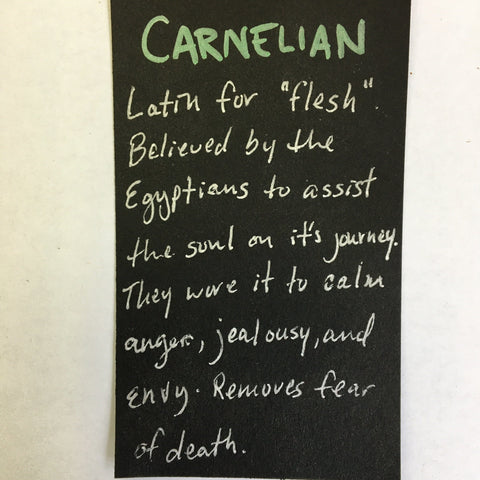 CARNELIAN
Latin for "flesh".
Believed by the
Egyptians to assist
the soul on it's journey.
They wore it to calm
anger, jealousy, and
envy. Removes fear
of death.